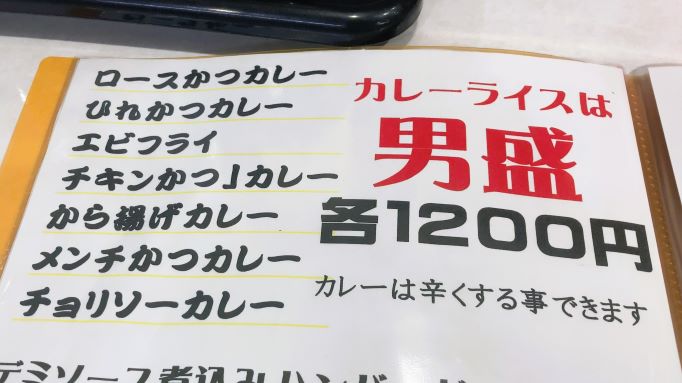 ロースかつカレー
ひれかつカレー
エビフライ
チキンかつ」カレー
から揚げカレー
メンチかつカレー
チョリソーカレー
カレーライスは
男盛
各1200円
カレーは辛くする事できます
デミソース煮込みハンバーグ